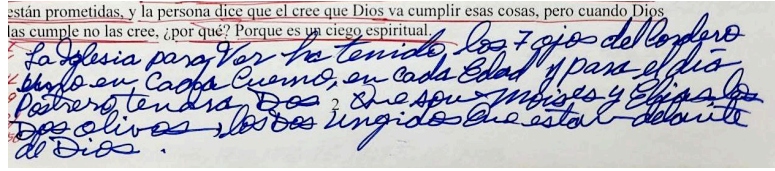 están prometidas, y la persona dice que el cree que Dios va cumplir esas cosas, pero cuando Dios
las cumple no las cree, ¿por qué? Porque es un ciego espiritual.
La Iglesia para Ver ha tenido los 7 ojos del Cordero
uno en Cada Cuerno, en cada Edad y para el día
Postrero tendra Dos 2 Que son Moises y Elias, los
Dos olivos, los Dos Ungidos Que estan delante
de Dios.